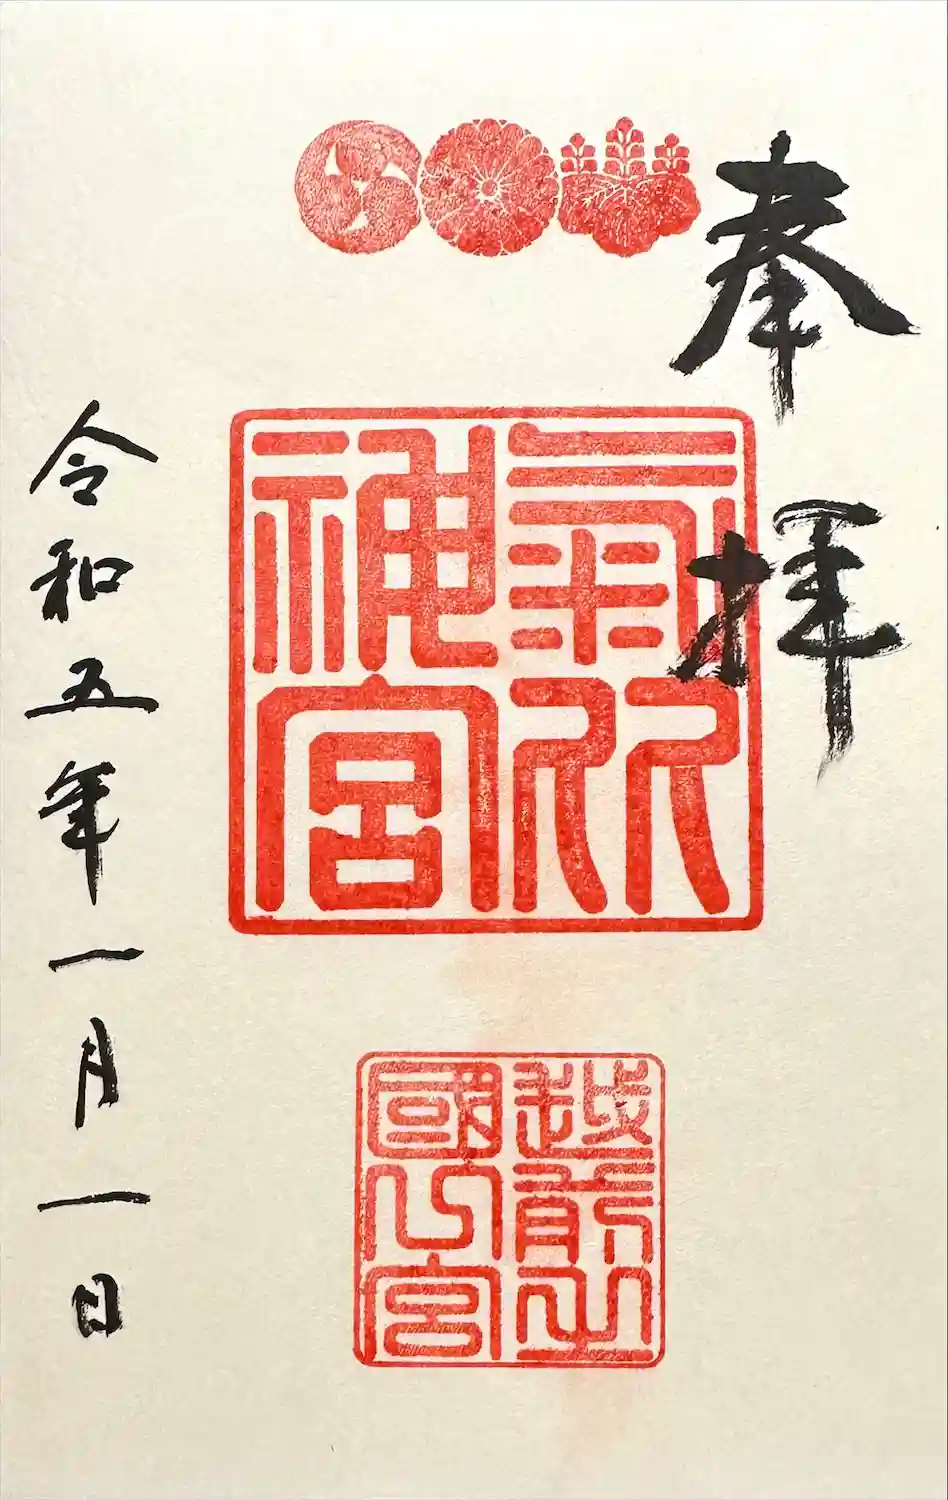 奉拝
氣比
神宮
越前之
國宮
令和五年一月一日